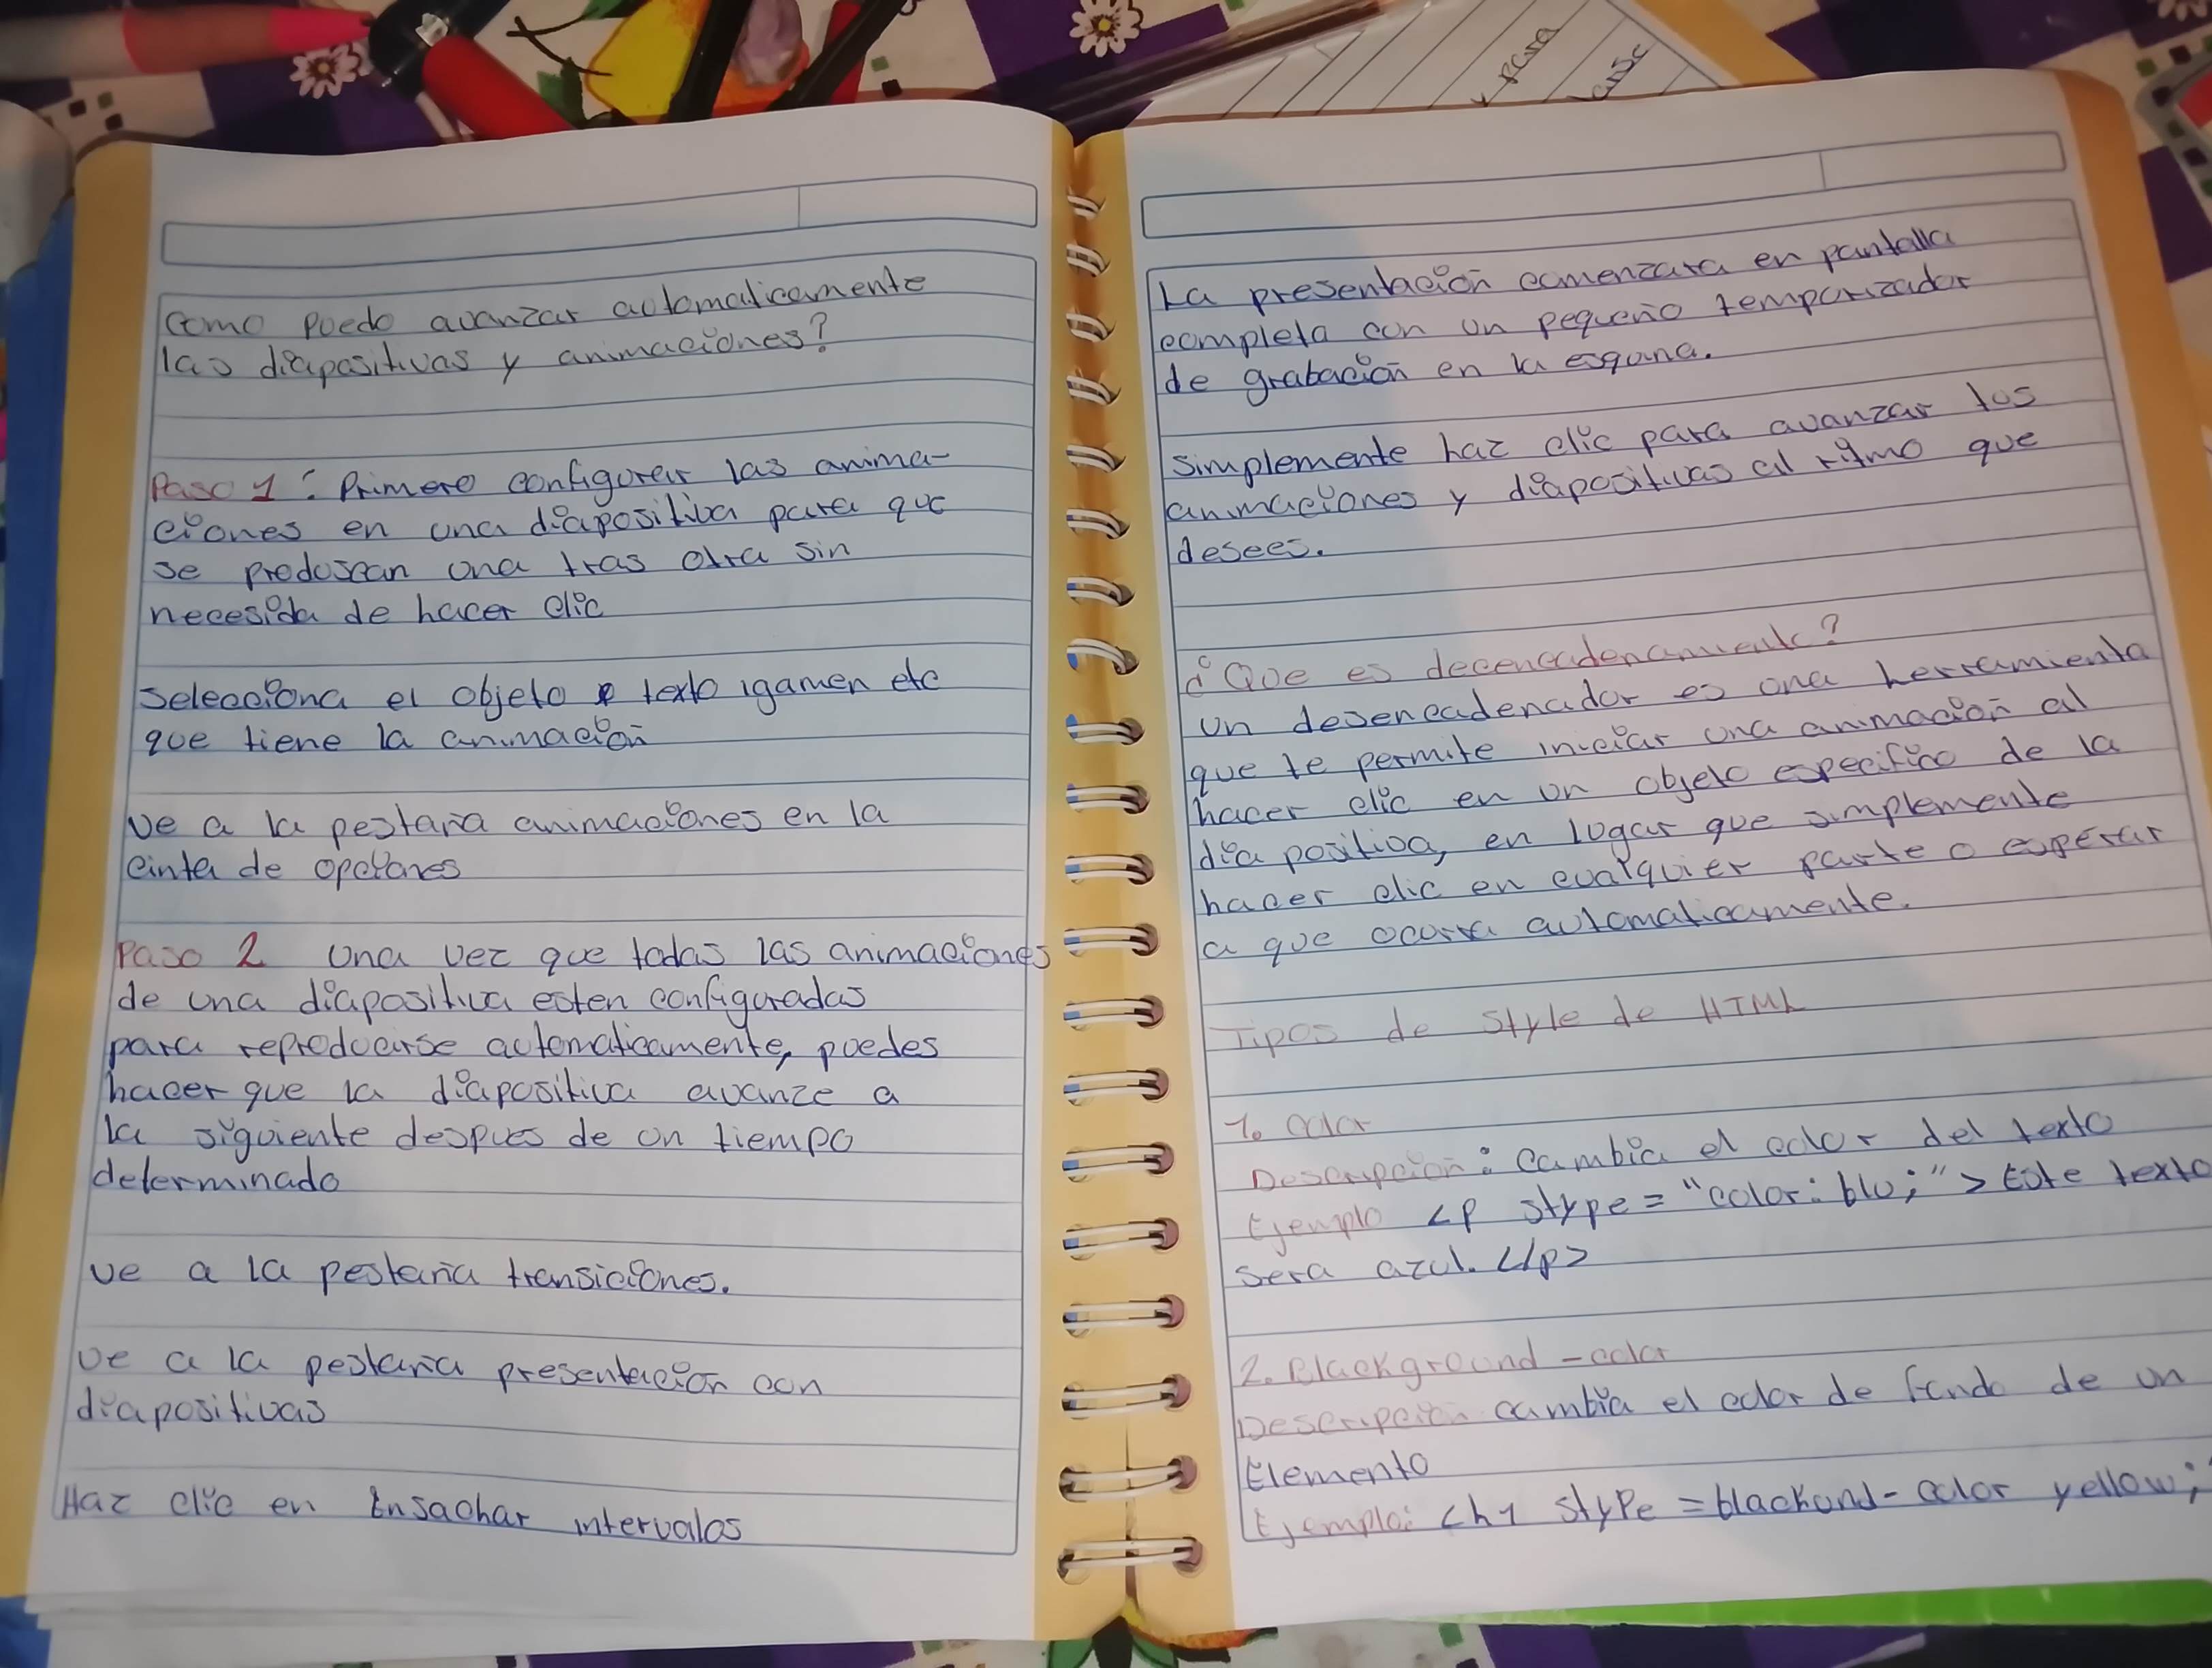 como puedo avanzar automaticamente
las diapositivas y animaciones?
Paso 1: Primero configurar las anima-
ciones en una diapositiba para que
se prodoscan una tras otra sin
necesida de hacer clic
selecciona el objeto texto igamen etc
que tiene la animación
ve a la pestaña animaciones en la
cinta de opciones
Paso 2 una vez que todas las animaciones
de una diapositiva esten configuradas
para reproducirse automaticamente, puedes
hacer que la diapositiva avanze a
la siguiente despues de un tiempo
determinado
ve a la pestaña transiciones.
ve a la pestaña presentación con
diapositivas
Haz clic en Ensachar intervalos
para
La presentación comenzara en pantalla
completa con un pequeño temporizador
de grabación en la esquna.
simplemente haz clic para avanzar las
animaciones y diapositivas al ritmo que
desees.
¿Que es decencadenamiento?
un desencadenador es una herramienta
que te permite iniciar una animación al
hacer clic en un objeto especifico de la
dia positiva, en lugar que simplemente
hacer clic en cualquier parte o esperar
a que ocurra automaticamente.
Tipos de style de HTML
1. color
Descripción: cambia el color del texto
Ejemplo <p stype = "color: blu;"> Este texto
sera azul. </p>
2. Blackground - color
Descripción cambia el color de fondo de un
Elemento
Ejemplo: <h1 stype = blackund - color yellow;"